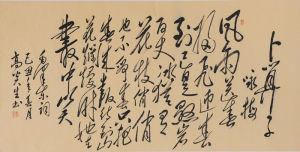 卜算子
咏梅
风雨送春
归飞雪迎春
到已是悬崖
百丈冰犹有
花枝俏俏
也不争春只把
春来报待到山
花烂漫时她在
丛中笑
毛泽东词
己丑年春月